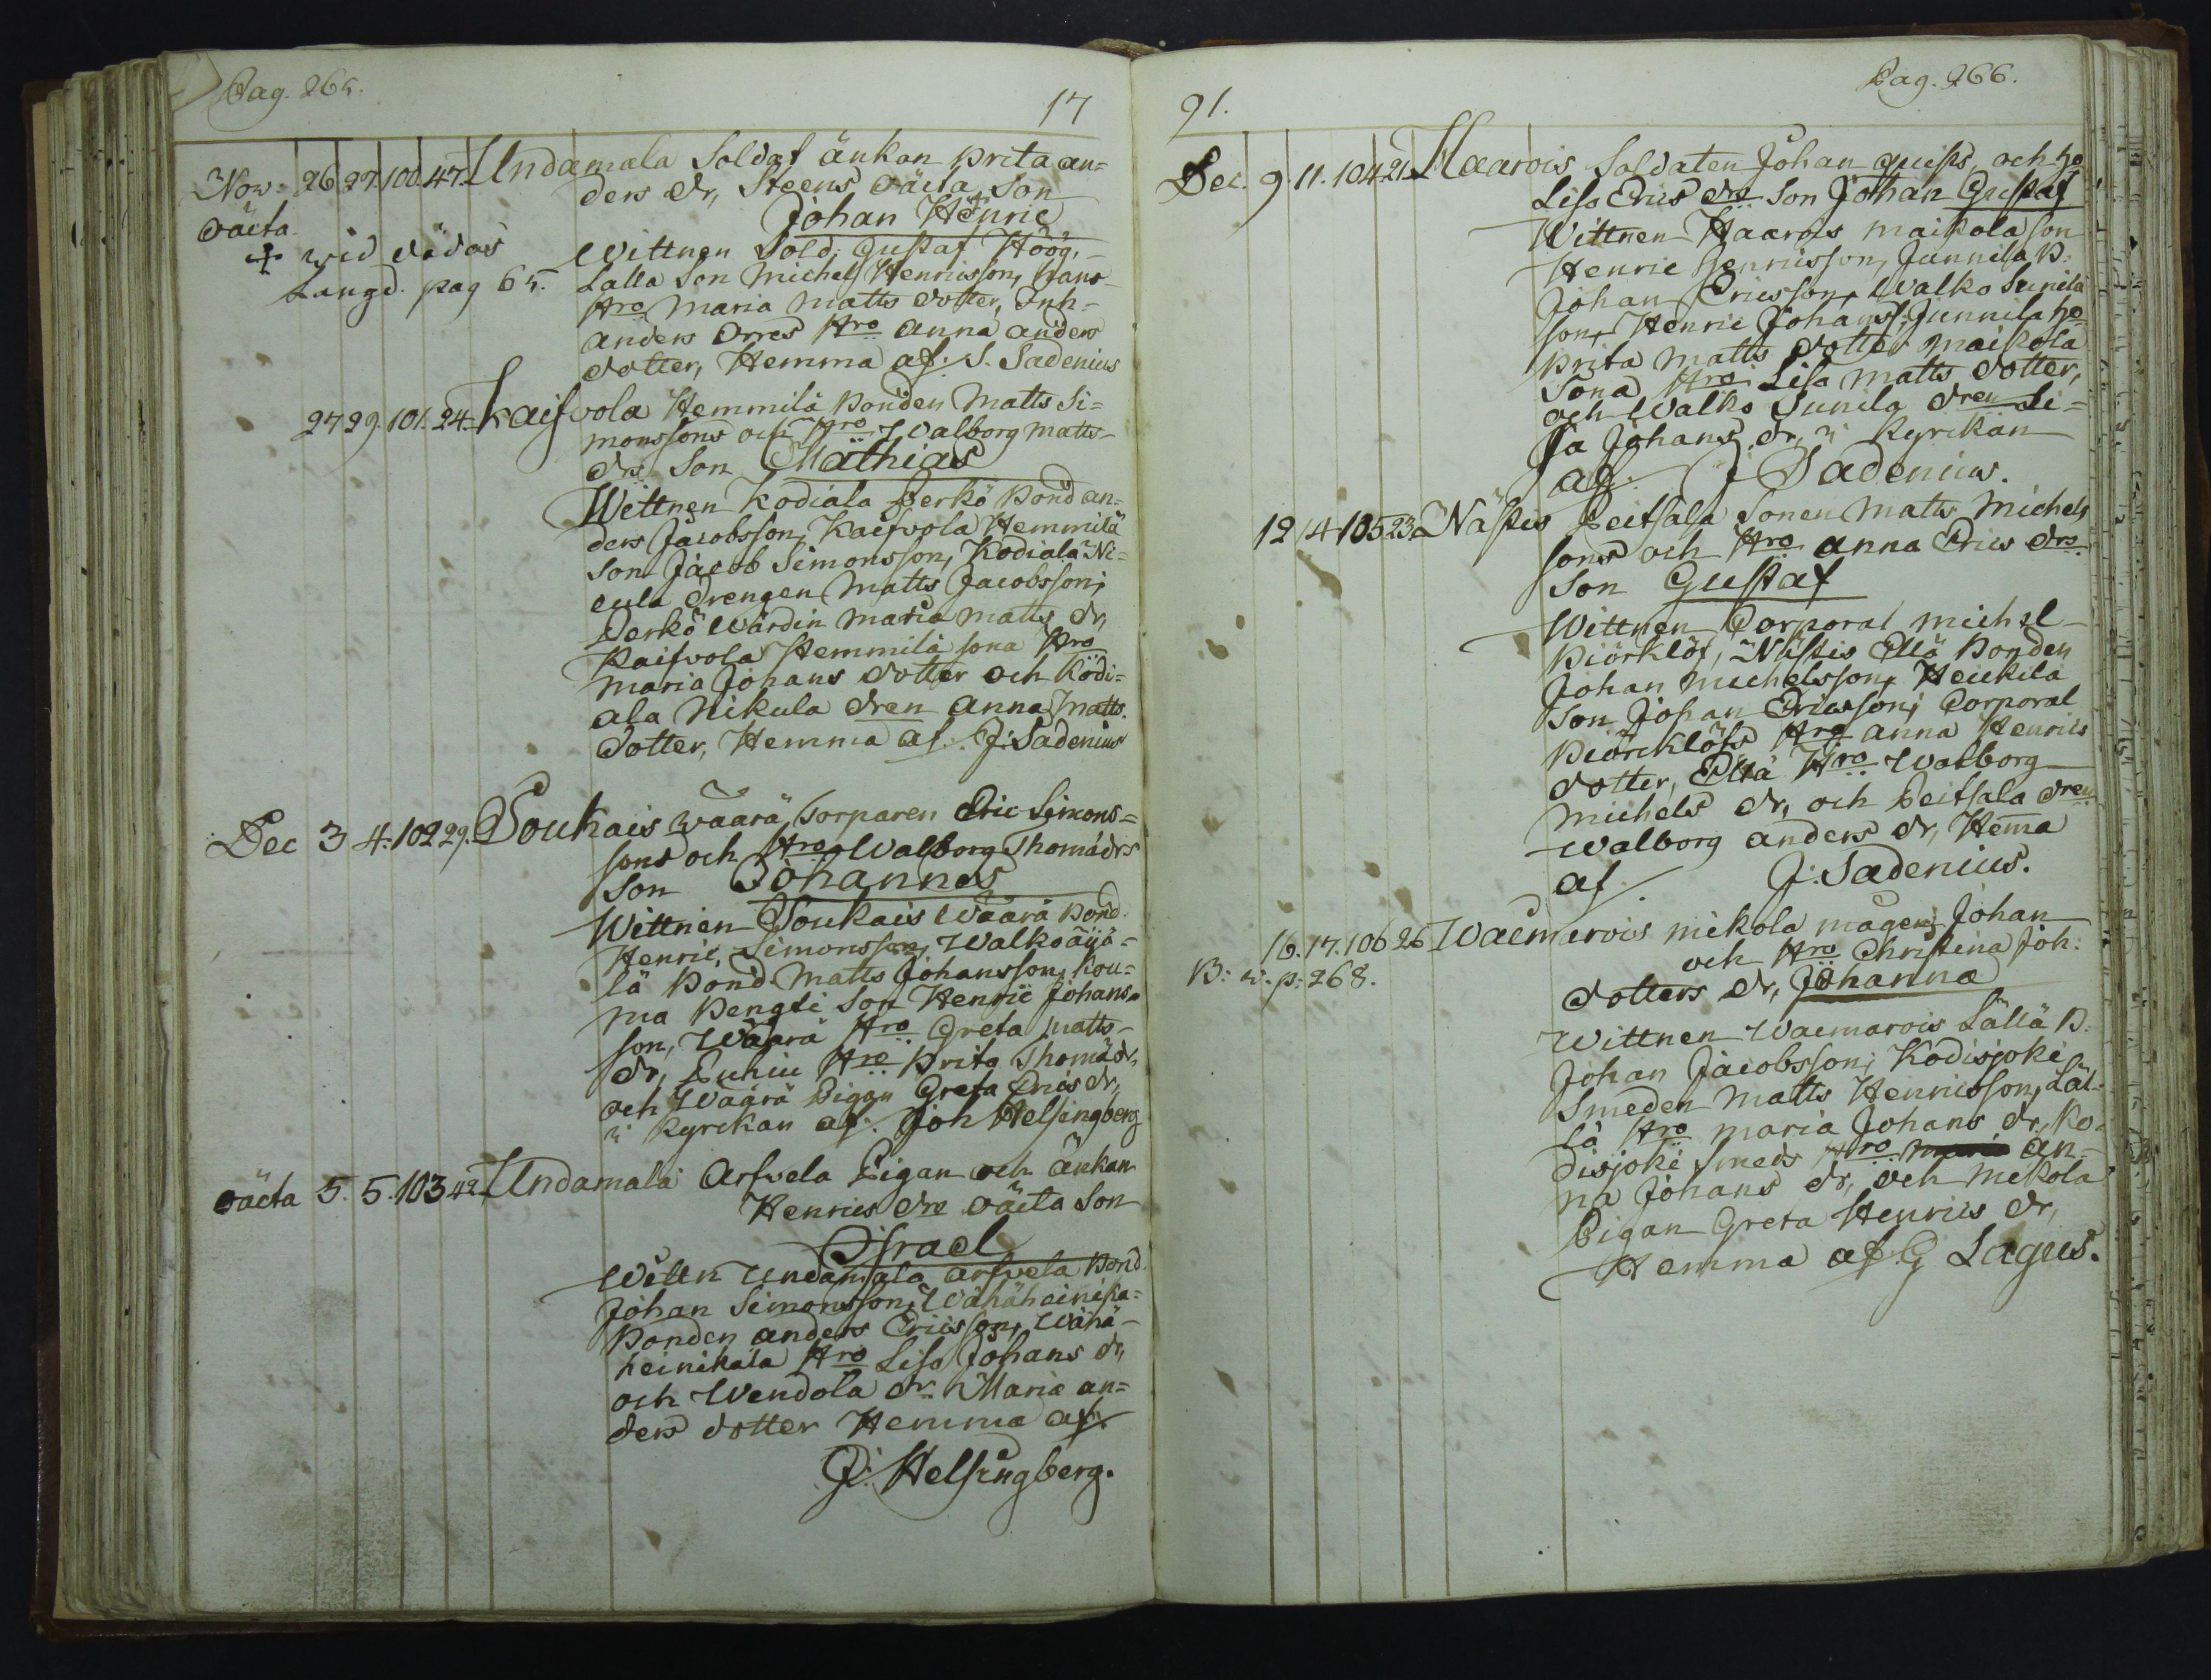 Pag. 265.
17
Nov: 26 27. 100. 47. Undamala Soldat änkan Brita an=
ders dr, Steens oäcta son
oäcta
Johan Henric
+ wid dödas
Langd. pag 65.
Wittnen Sold. Gustaf Höög,
Lalla Son Michel Henricsson, hans
Hro Maria Matts dotter, Inh-
anders Orres Hro Anna anders
dotter, Hemma af J. Sadenius
27 29. 101. 24. Kaifvola Hemmilä Bonden Matts Si=
monssons och Hro Walborg Matts
drs Son Mathias
Wittnen Kodiala Perkö Bond an=
ders Jacobsson, Kaifvola Hemmilä
Son Jacob Simonsson, Kodiala Ni=
cula Drengen Matts Jacobsson;
Perkö Wärdin Maria Matts dr,
Kaifvola Hemmilä sona Hro
Maria Johans dotter och Kodi=
ala Nikula dren Anna Matts
dotter, Hemma af. J: Sadenius
Dec 3 4. 102 29. Soukais Waärä Torparen Eric Simons=
sons och Hro Walborg Thomädrs
Son Johannes
Wittnen Soukais Wäärä Bond.
Henric Simonsson, Walko äijä=
lä Bond. Matts Johansson, Kou=
ma Bengti Son Henric Johans=
son, Wäärä Hro Greta Matts
dr, Hro Brita Thomädr,
och Wäärä Pigan Greta Erics dr,
i Kyrckan af. Joh Helsingberg
oäcta 5. 5. 103 42 Undamala Arfvela Pigan och änkan
Henrics drs oäcta Son
Israel
Wittn Undamala arfvela Bond.
Johan Simonsson, Wähäheinika=
Bonden anders Ericsson, Wähä-
heinikala Hro Lisa Johans dr,
och Wendola dr Maria an=
ders dotter Hemma af.
J: Helsingberg.
91.
Pag. 266.
Dec. 9. 11. 104 21. Haarois Soldaten Johan quists, och ho
Lisa Erics drs Son Johan Gustaf
Wittnen Haarois maikola son
Henric Henricsson, Junnila B.
Johan Ericsson, Walko Sunila
son, Henric Johanss. Junnila ho
Brita Matts dotter maikola
Sona Hro Lisa Matts dotter,
och Walko Sunila dren Li=
sa Johans dr, i Kyrckan
af. J Sadenius.
12 14 105 23 Nästis Peitsala Sonen Matts Michels
sons och Hro Anna Erics drs
Son Gustaf
Wittnen Corporal Michel
Biörklöf, Nästis Ellä Bonden
Johan Michelsson, Heickilä
Son Johan Ericsson; Corporal
Biörcklöfs Hro Anna Henrics
dotter, Ellä Hro Walborg
Michels dr, och Peitsala dren
Walborg anders dr, Hemma
af. J: Sadenius.
16. 17. 106 26 Waemarois mikola magen, Johan
och Hro Christina Joh:
B: w. p: 268.
dotters dr, Johanna
Wittnen Waemarois Lällä B.
Johan Jacobsson; Kodisjoki
Smeden Matts Henricsson, Läl=
lä Hro Maria Johans dr, Ko=
disjoki Smeds Hro an=
na Johans dr, och Mikola
Pigan Greta Henrics dr,
Hemma af. G Lagus.